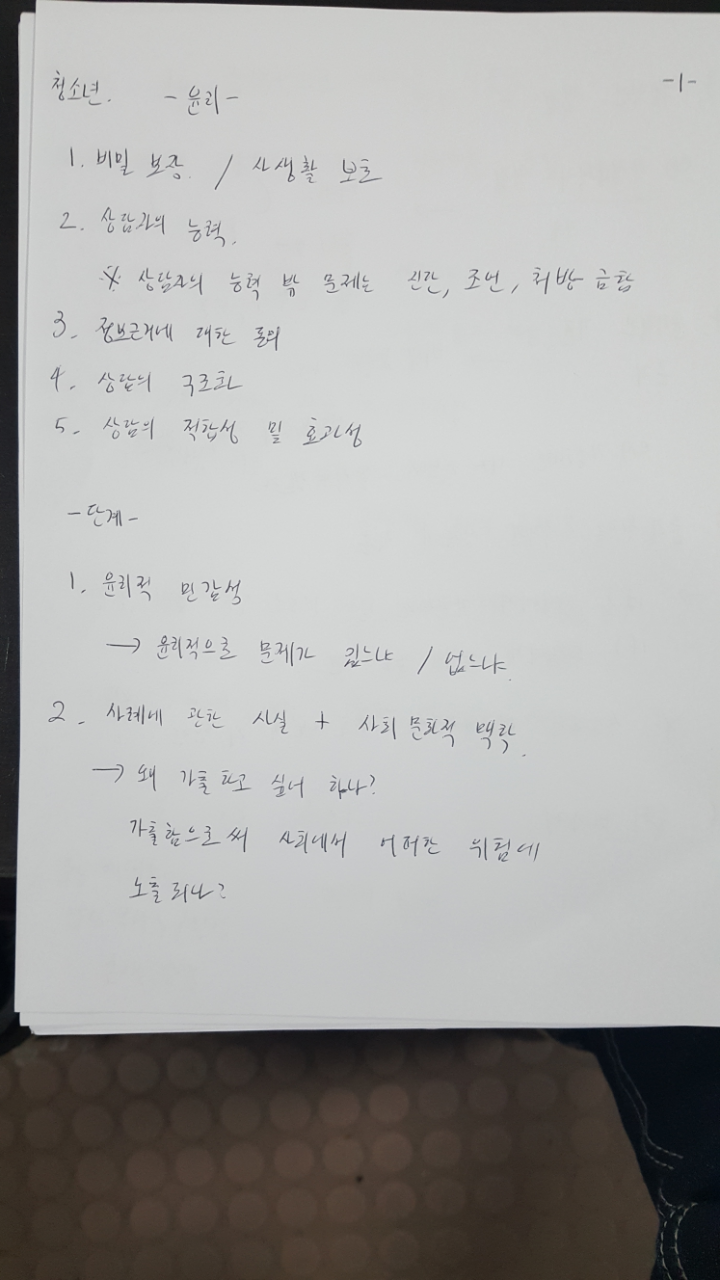 청소년. - 윤리 - -1-
1. 비밀 보장. / 사생활 보호
2. 상담자의 능력.
※ 상담자의 능력 밖 문제는 진단, 조언, 처방 금함
3. 정보근거에 대한 동의
4. 상담의 구조화
5. 상담의 적합성 및 효과성
- 단계 -
1. 윤리적 민감성
→ 윤리적으로 문제가 있느냐 / 없느냐.
2. 사례에 관한 사실 + 사회 문화적 맥락.
→ 왜 가출하고 싶어 하나?
가출함으로써 사회에서 어떠한 위험에
노출되나?